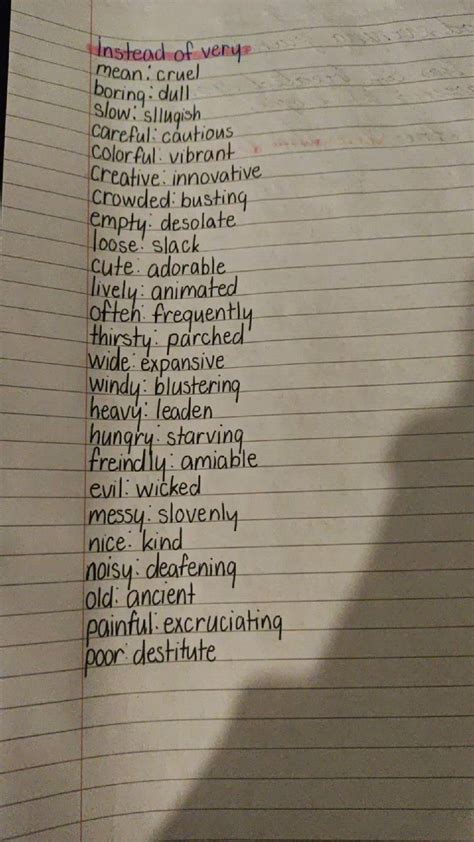 Instead of very
mean: cruel
boring: dull
slow: sllugish
careful: cautious
colorful: vibrant
creative: innovative
crowded: busting
empty: desolate
loose: slack
cute: adorable
lively: animated
often: frequently
thirsty: parched
wide: expansive
windy: blustering
heavy: leaden
hungry: starving
freindly: amiable
evil: wicked
messy: slovenly
nice: kind
noisy: deafening
old: ancient
painful: excruciating
poor: destitute